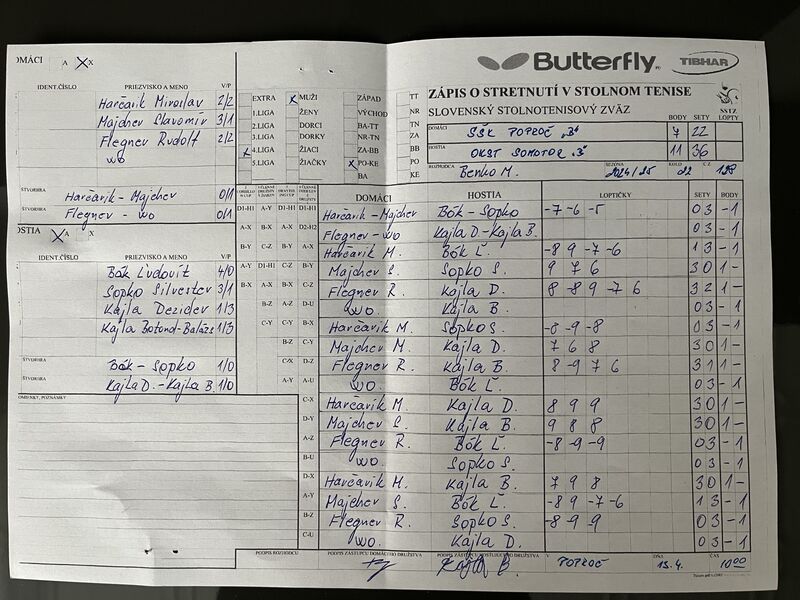 Butterfly TIBHAR
OMÁCI A X X
IDENT. ČÍSLO PRIEZVISKO A MENO V/P
Harčarik Miroslav 2/2
Majcher Slavomír 3/1
Flegner Rudolf 2/2
wo
ŠTVORHRA Harčarik - Majcher 0/1
ŠTVORHRA Flegner - wo 0/1
OSTIA A X X
IDENT. ČÍSLO PRIEZVISKO A MENO V/P
Bók Ľudovít 4/0
Sopko Silvester 3/1
Kajla Dezider 1/3
Kajla Botond-Balázs 1/3
ŠTVORHRA Bók - Sopko 1/0
ŠTVORHRA Kajla D. - Kajla B. 1/0
OMIENKY, POZNÁMKY
EXTRA X MUŽI ZÁPAD TT
1.LIGA ŽENY VÝCHOD NR
2.LIGA DORCI BA-TT TN
3.LIGA DORKY NR-TN ZA
X 4.LIGA ŽIACI ZA-BB BB
5.LIGA ŽIAČKY X PO-KE PO
BA KE
ZÁPIS O STRETNUTÍ V STOLNOM TENISE
SLOVENSKÝ STOLNOTENISOVÝ ZVÄZ
SSTZ
BODY SETY LOPTY
DOMÁCI SŠK POPROČ "B" 7 22
HOSTIA OKST SOMOTOR "B" 11 36
ROZHODCA Benko M. SEZÓNA 2024/25 KOLO 22 Č.Z. 128
DOMÁCI HOSTIA LOPTIČKY SETY BODY
Harčarik - Majcher Bók - Sopko -7 -6 -5 0 3 -1
Flegner - wo Kajla D - Kajla B. 0 3 -1
Harčarik M. Bók Ľ. -8 9 -7 -6 1 3 -1
Majcher S. Sopko S. 9 7 6 3 0 1-
Flegner R. Kajla D. 8 -8 9 -7 6 3 2 1-
wo. Kajla B. 0 3 -1
Harčarik M. Sopko S. -8 -9 -8 0 3 -1
Majcher M. Kajla D. 7 6 8 3 0 1-
Flegner R. Kajla B. 8 -9 7 6 3 1 1-
wo. Bók Ľ. 0 3 -1
Harčarik M. Kajla D. 8 9 9 3 0 1-
Majcher S. Kajla B. 9 8 8 3 0 1-
Flegner R. Bók Ľ. -8 -9 -9 0 3 -1
wo. Sopko S. 0 3 -1
Harčarik M. Kajla B. 7 9 8 3 0 1-
Majcher S. Bók Ľ. -8 9 -7 -6 1 3 -1
Flegner R. Sopko S. -8 -9 9 0 3 -1
wo. Kajla D. 0 3 -1
PODPIS ROZHODCU PODPIS ZÁSTUPCU DOMÁCEHO DRUŽSTVA PODPIS ZÁSTUPCU HOSŤUJÚCEHO DRUŽSTVA V POPROČ DŇA 13.4. ČAS 10:00